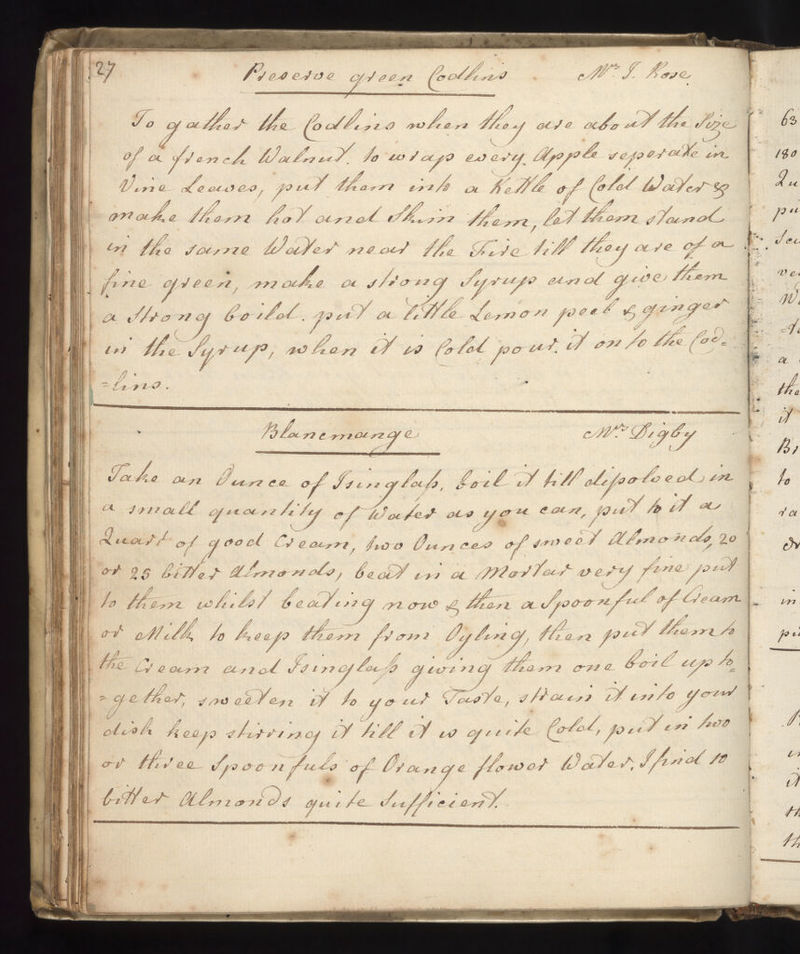 27
Preserve green Codlins Mrs J. Rose.
To gather the Codlins when they are about the Size
of a french Walnut. to wrap every. Apple seperate in
Vine Leaves, put them into a Kettle of Cold Water &
make them hot and Skim them, let them stand
in the same Water near the Fire till they are of a
fine green, make a strong Syrup and give them
a strong boild. put a little Lemon peel & ginger
in the Syrup, when it is Cold pour. it on to the Cod=
=lins.
Blancmange Mrs Digby
Take an Ounce of Isinglaſs, boil it till diſsolved in
a small quantity of Water as you can, put to it a
Quart of good Cream, two Ounces of sweet Almonds, 20
or 25 bitter almonds, beat in a Mortar very fine put
to them whilst beating now & then a Spoonful of Cream
or Milk to keep them from Oyling, then put them to
the Cream and Isinglaſs giving them one boil up to=
=gether, sweeten it to your Taste, strain it into your
dish keep stirring it till it is quite Cold, put in two
or three Spoonfuls of Orange flower Water. I find 10
bitter Almonds quite Sufficient.
63
180
Qu
a
the
it
to
in
it